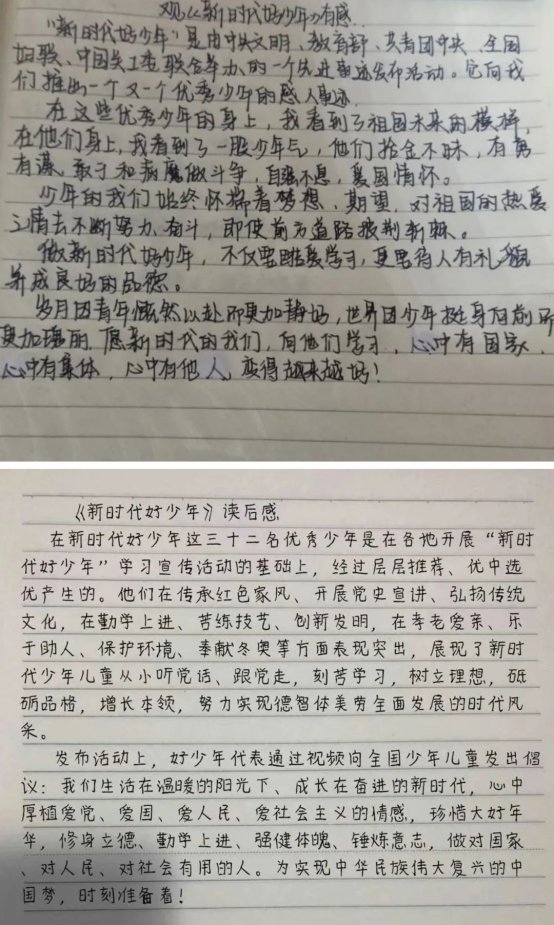 观《新时代好少年》有感
“新时代好少年”是由中央文明、教育部、共青团中央、全国
妇联、中国关工委联合举办的一个先进事迹发布活动。它向我
们推出一个又一个优秀少年的感人事迹.
在这些优秀少年的身上，我看到了祖国未来的模样，
在他们身上，我看到了一股少年气，他们拾金不昧，有勇
有谋，敢于和病魔做斗争，自强不息，爱国情怀。
少年的我们始终怀揣着梦想、期望，对祖国的热爱
之情去不断努力、奋斗，即使前方道路披荆斩棘。
做新时代好少年，不仅要酷爱学习，更要待人有礼貌
养成良好的品德。
岁月因青年慨然以赴而更加静好，世界因少年挺身向前而
更加瑰丽。愿新时代的我们，向他们学习，心中有国家、
心中有集体，心中有他人，变得越来越好！
《新时代好少年》读后感
在新时代好少年这三十二名优秀少年是在各地开展“新时
代好少年”学习宣传活动的基础上，经过层层推荐、优中选
优产生的。他们在传承红色家风、开展党史宣讲、弘扬传统
文化，在勤学上进、苦练技艺、创新发明，在孝老爱亲、乐
于助人、保护环境、奉献冬奥等方面表现突出，展现了新时
代少年儿童从小听党话、跟党走，刻苦学习，树立理想，砥
砺品格，增长本领，努力实现德智体美劳全面发展的时代风
采。
发布活动上，好少年代表通过视频向全国少年儿童发出倡
议：我们生活在温暖的阳光下、成长在奋进的新时代，心中
厚植爱党、爱国、爱人民、爱社会主义的情感，珍惜大好年
华，修身立德、勤学上进、强健体魄、锤炼意志，做对国家
、对人民、对社会有用的人。为实现中华民族伟大复兴的中
国梦，时刻准备着！